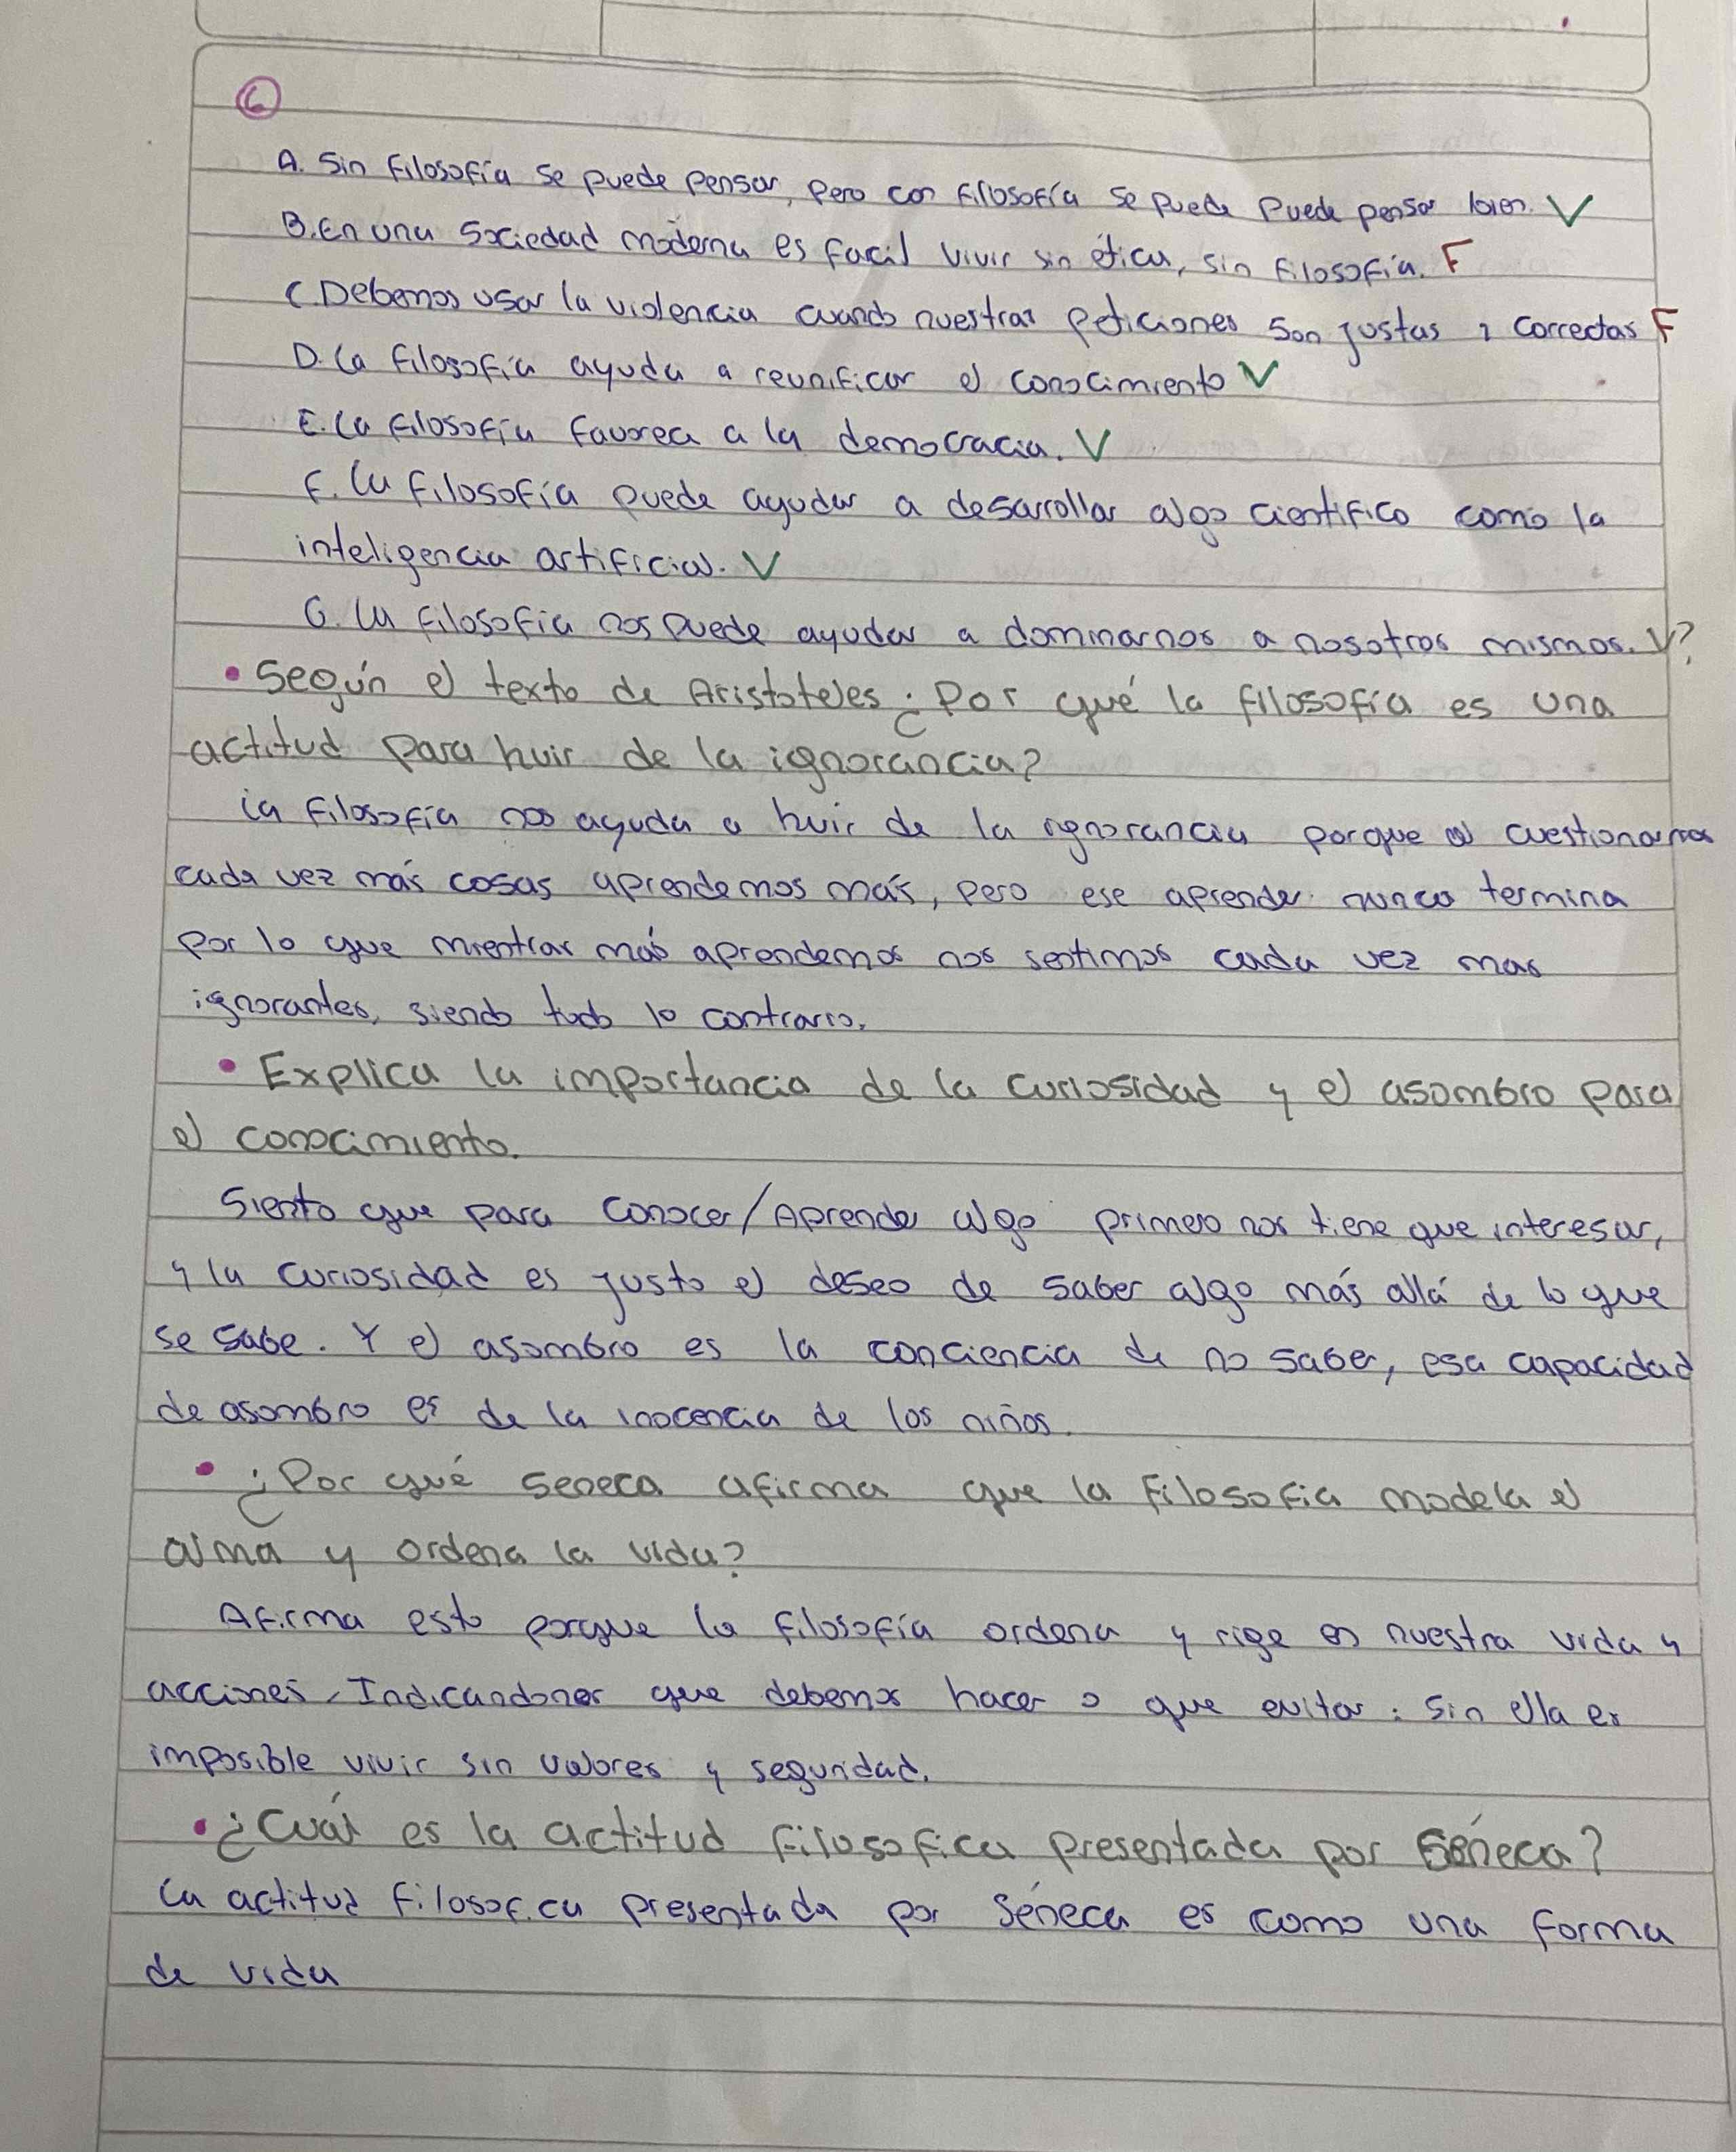 6
A. Sin filosofía se puede pensar, pero con filosofía se puede puede pensar bien. V
B. En una sociedad moderna es facil vivir sin ética, sin filosofía. F
C Debemos usar la violencia cuando nuestras peticiones son justas y correctas F
D. La filosofía ayuda a reunificar el conocimiento V
E. La filosofía favorea a la democracia. V
F. La filosofía puede ayudar a desarrollar algo cientifico como la
inteligencia artificial. V
G. La filosofia nos puede ayudar a dominarnos a nosotros mismos. V?
• Según el texto de Aristoteles ¿Por qué la filosofía es una
actitud para huir de la ignorancia?
la filosofía nos ayuda a huir de la ignorancia porque al cuestionarnos
cada vez más cosas aprendemos más, pero ese aprender nunca termina
por lo que mientras más aprendemos nos sentimos cada vez mas
ignorantes, siendo todo lo contrario.
• Explica la importancia de la curiosidad y el asombro para
el conocimiento.
Siento que para conocer/Aprender algo primero nos tiene que interesar,
y la curiosidad es justo el deseo de saber algo más allá de lo que
se sabe. Y el asombro es la conciencia de no saber, esa capacidad
de asombro es de la inocencia de los niños.
• ¿Por qué seneca afirma que la filosofia modela el
alma y ordena la vida?
Afirma esto porque la filosofía ordena y rige en nuestra vida y
acciones, Indicandonos que debemos hacer o que evitar; sin ella es
imposible vivir sin valores y seguridad.
• ¿Cuál es la actitud filosofica presentada por Séneca?
La actitud filosofica presentada por Séneca es como una forma
de vida